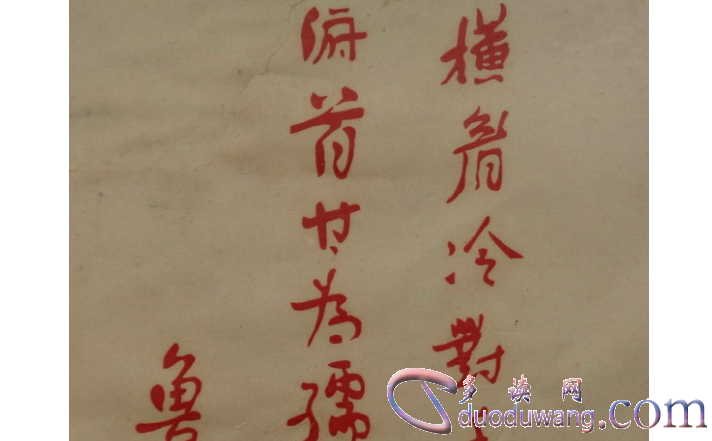 橫眉冷對
俯首甘為孺
魯
多读网
duoduwang.com